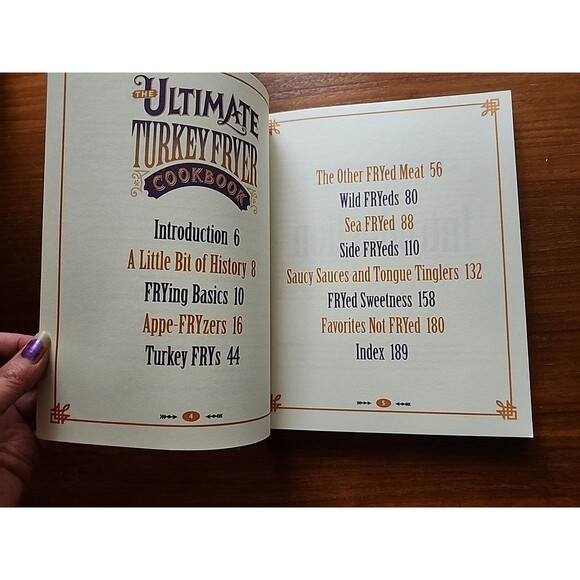 THE
ULTIMATE
TURKEY FRYER
COOKBOOK
Introduction 6
A Little Bit of History 8
FRYing Basics 10
Appe-FRYzers 16
Turkey FRYs 44
4
The Other FRYed Meat 56
Wild FRYeds 80
Sea FRYed 88
Side FRYeds 110
Saucy Sauces and Tongue Tinglers 132
FRYed Sweetness 158
Favorites Not FRYed 180
Index 189
5